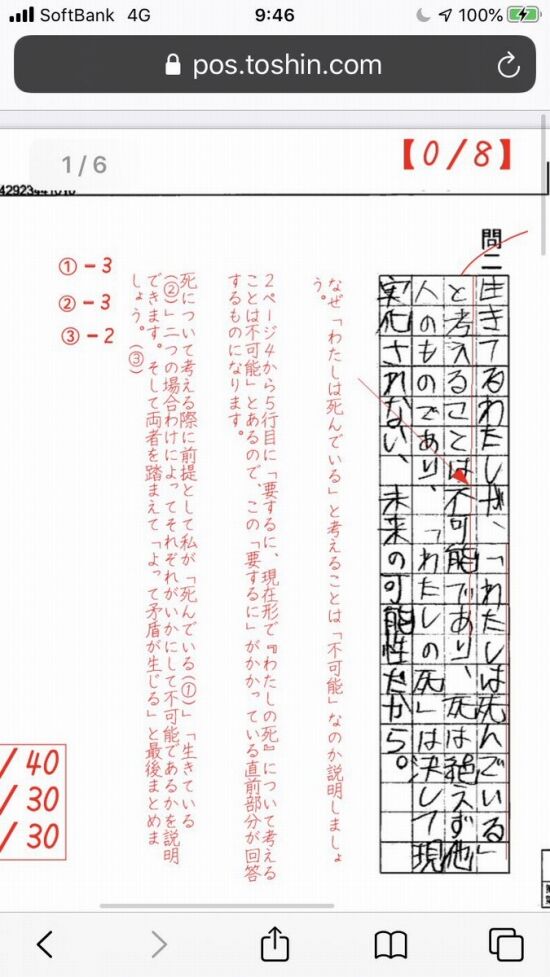 SoftBank 4G 9:46 100%
pos.toshin.com
1/6
【0/8】
42923441010
問二
生きてるわたしが、「わたしは死んでいる」
と考えることは不可能であり、死は絶えず他
人のものであり、「わたしの死」は決して現
実化されない、未来の可能性だから。
なぜ「わたしは死んでいる」と考えることは「不可能」なのか説明しましょ
う。
2ページ4から5行目に「要するに、現在形で『わたしの死』について考える
ことは不可能」とあるので、この「要するに」がかかっている直前部分が回答
するものになります。
死について考える際に前提として私が「死んでいる(①)」「生きている
(②)」二つの場合わけによってそれぞれがいかにして不可能であるかを説明
できます。そして両者を踏まえて「よって矛盾が生じる」と最後まとめま
しょう。(③)
①-3
②-3
③-2
/40
/30
/30